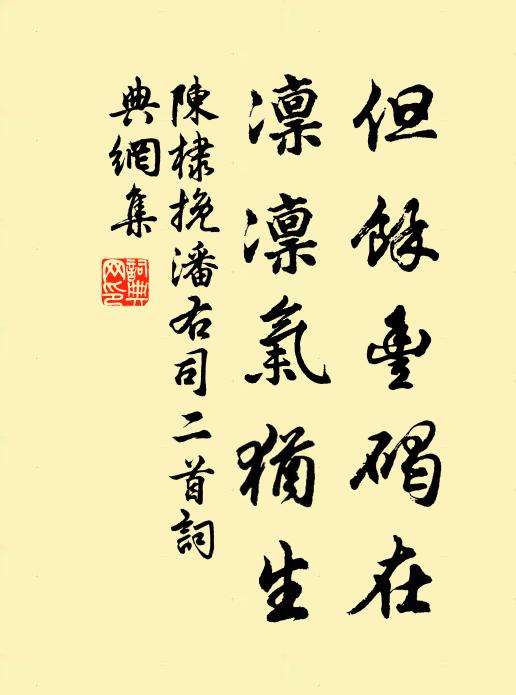 但餘豐碣在
凜凜氣猶生
陳棣挽潘右司二首詞
典網集
詞典
网印